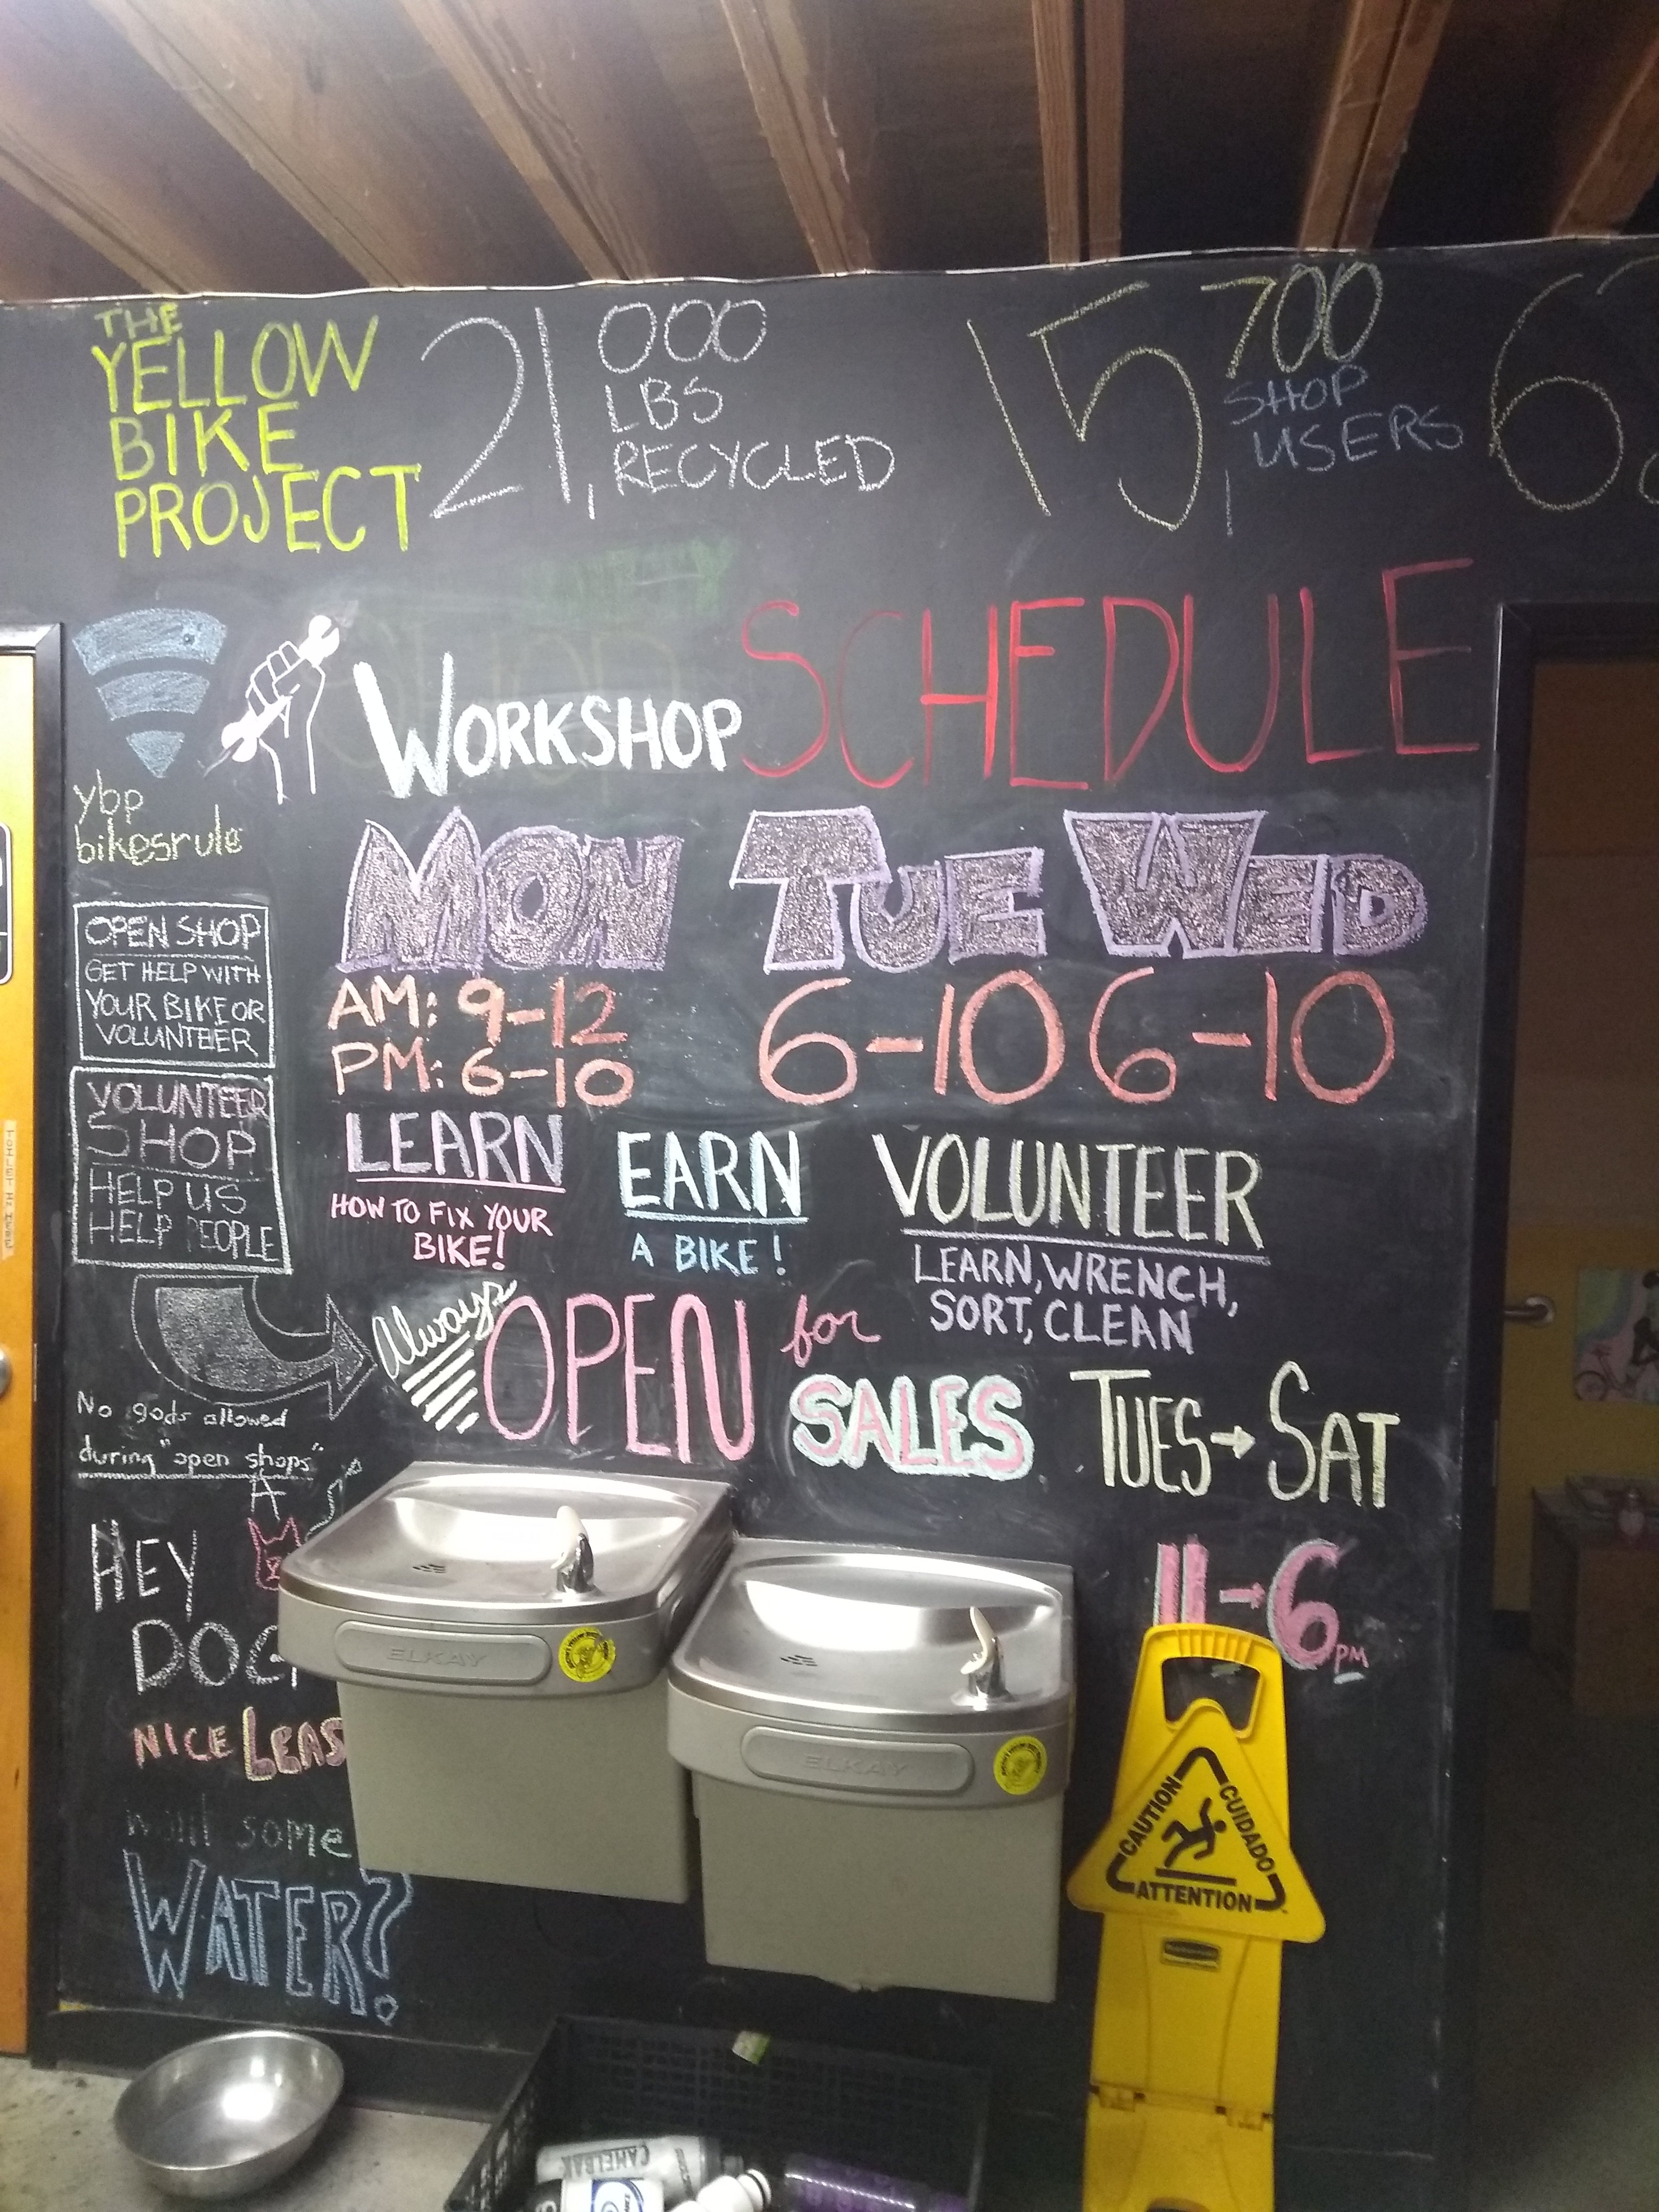 THE
YELLOW
BIKE
PROJECT
21,000
LBS
RECYCLED
15,700
SHOP
USERS
6
WORKSHOP SCHEDULE
ybp
bikesrule
MON TUE WED
AM: 9-12
PM: 6-10
6-10 6-10
OPEN SHOP
GET HELP WITH
YOUR BIKE OR
VOLUNTEER
VOLUNTEER
SHOP
HELP US
HELP PEOPLE
LEARN
HOW TO FIX YOUR
BIKE!
EARN
A BIKE!
VOLUNTEER
LEARN, WRENCH,
SORT, CLEAN
Always OPEN for
SALES TUES→SAT
11→6PM
No gods allowed
during "open shops"
HEY
DOG
NICE LEAS
some
WATER?
ELKAY
ELKAY
CAUTION
CUIDADO
ATTENTION
Rubbermaid
CAMELBAK